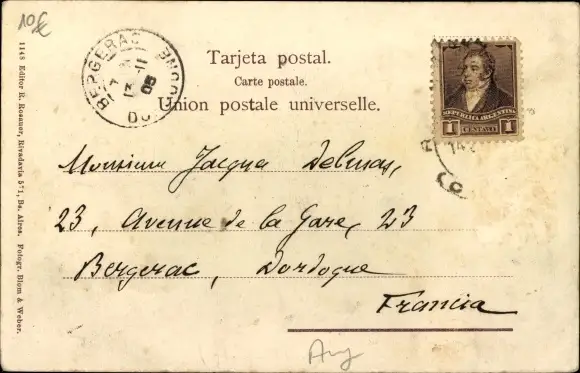 10€
Tarjeta postal.
Carte postale.
Union postale universelle.
BERGERAC
11
05
REPUBLICA ARGENTINA
1 CENTAVO 1
Monsieur Jacques Delmas,
23, Avenue de la Gare, 23
Bergerac, Dordogne
Francia
1148 Editor R. Rosauer, Rivadavia 571, Bs. Aires. Fotogr. Blum & Weber.